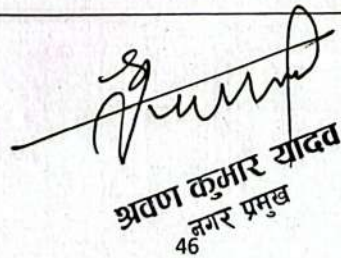 श्रवण कुमार यादव
नगर प्रमुख
46